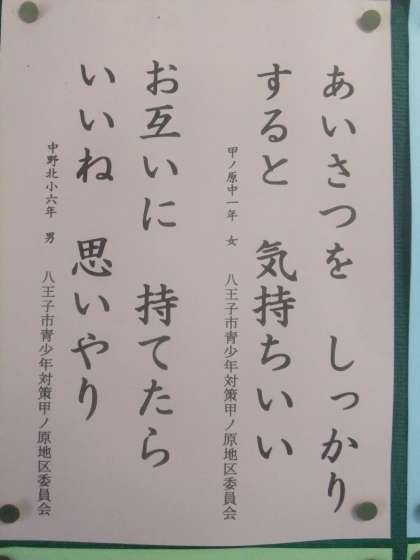 あいさつを　しっかり
すると　気持ちいい
甲ノ原中一年　女　八王子市青少年対策甲ノ原地区委員会
お互いに　持てたら
いいね　思いやり
中野北小六年　男　八王子市青少年対策甲ノ原地区委員会